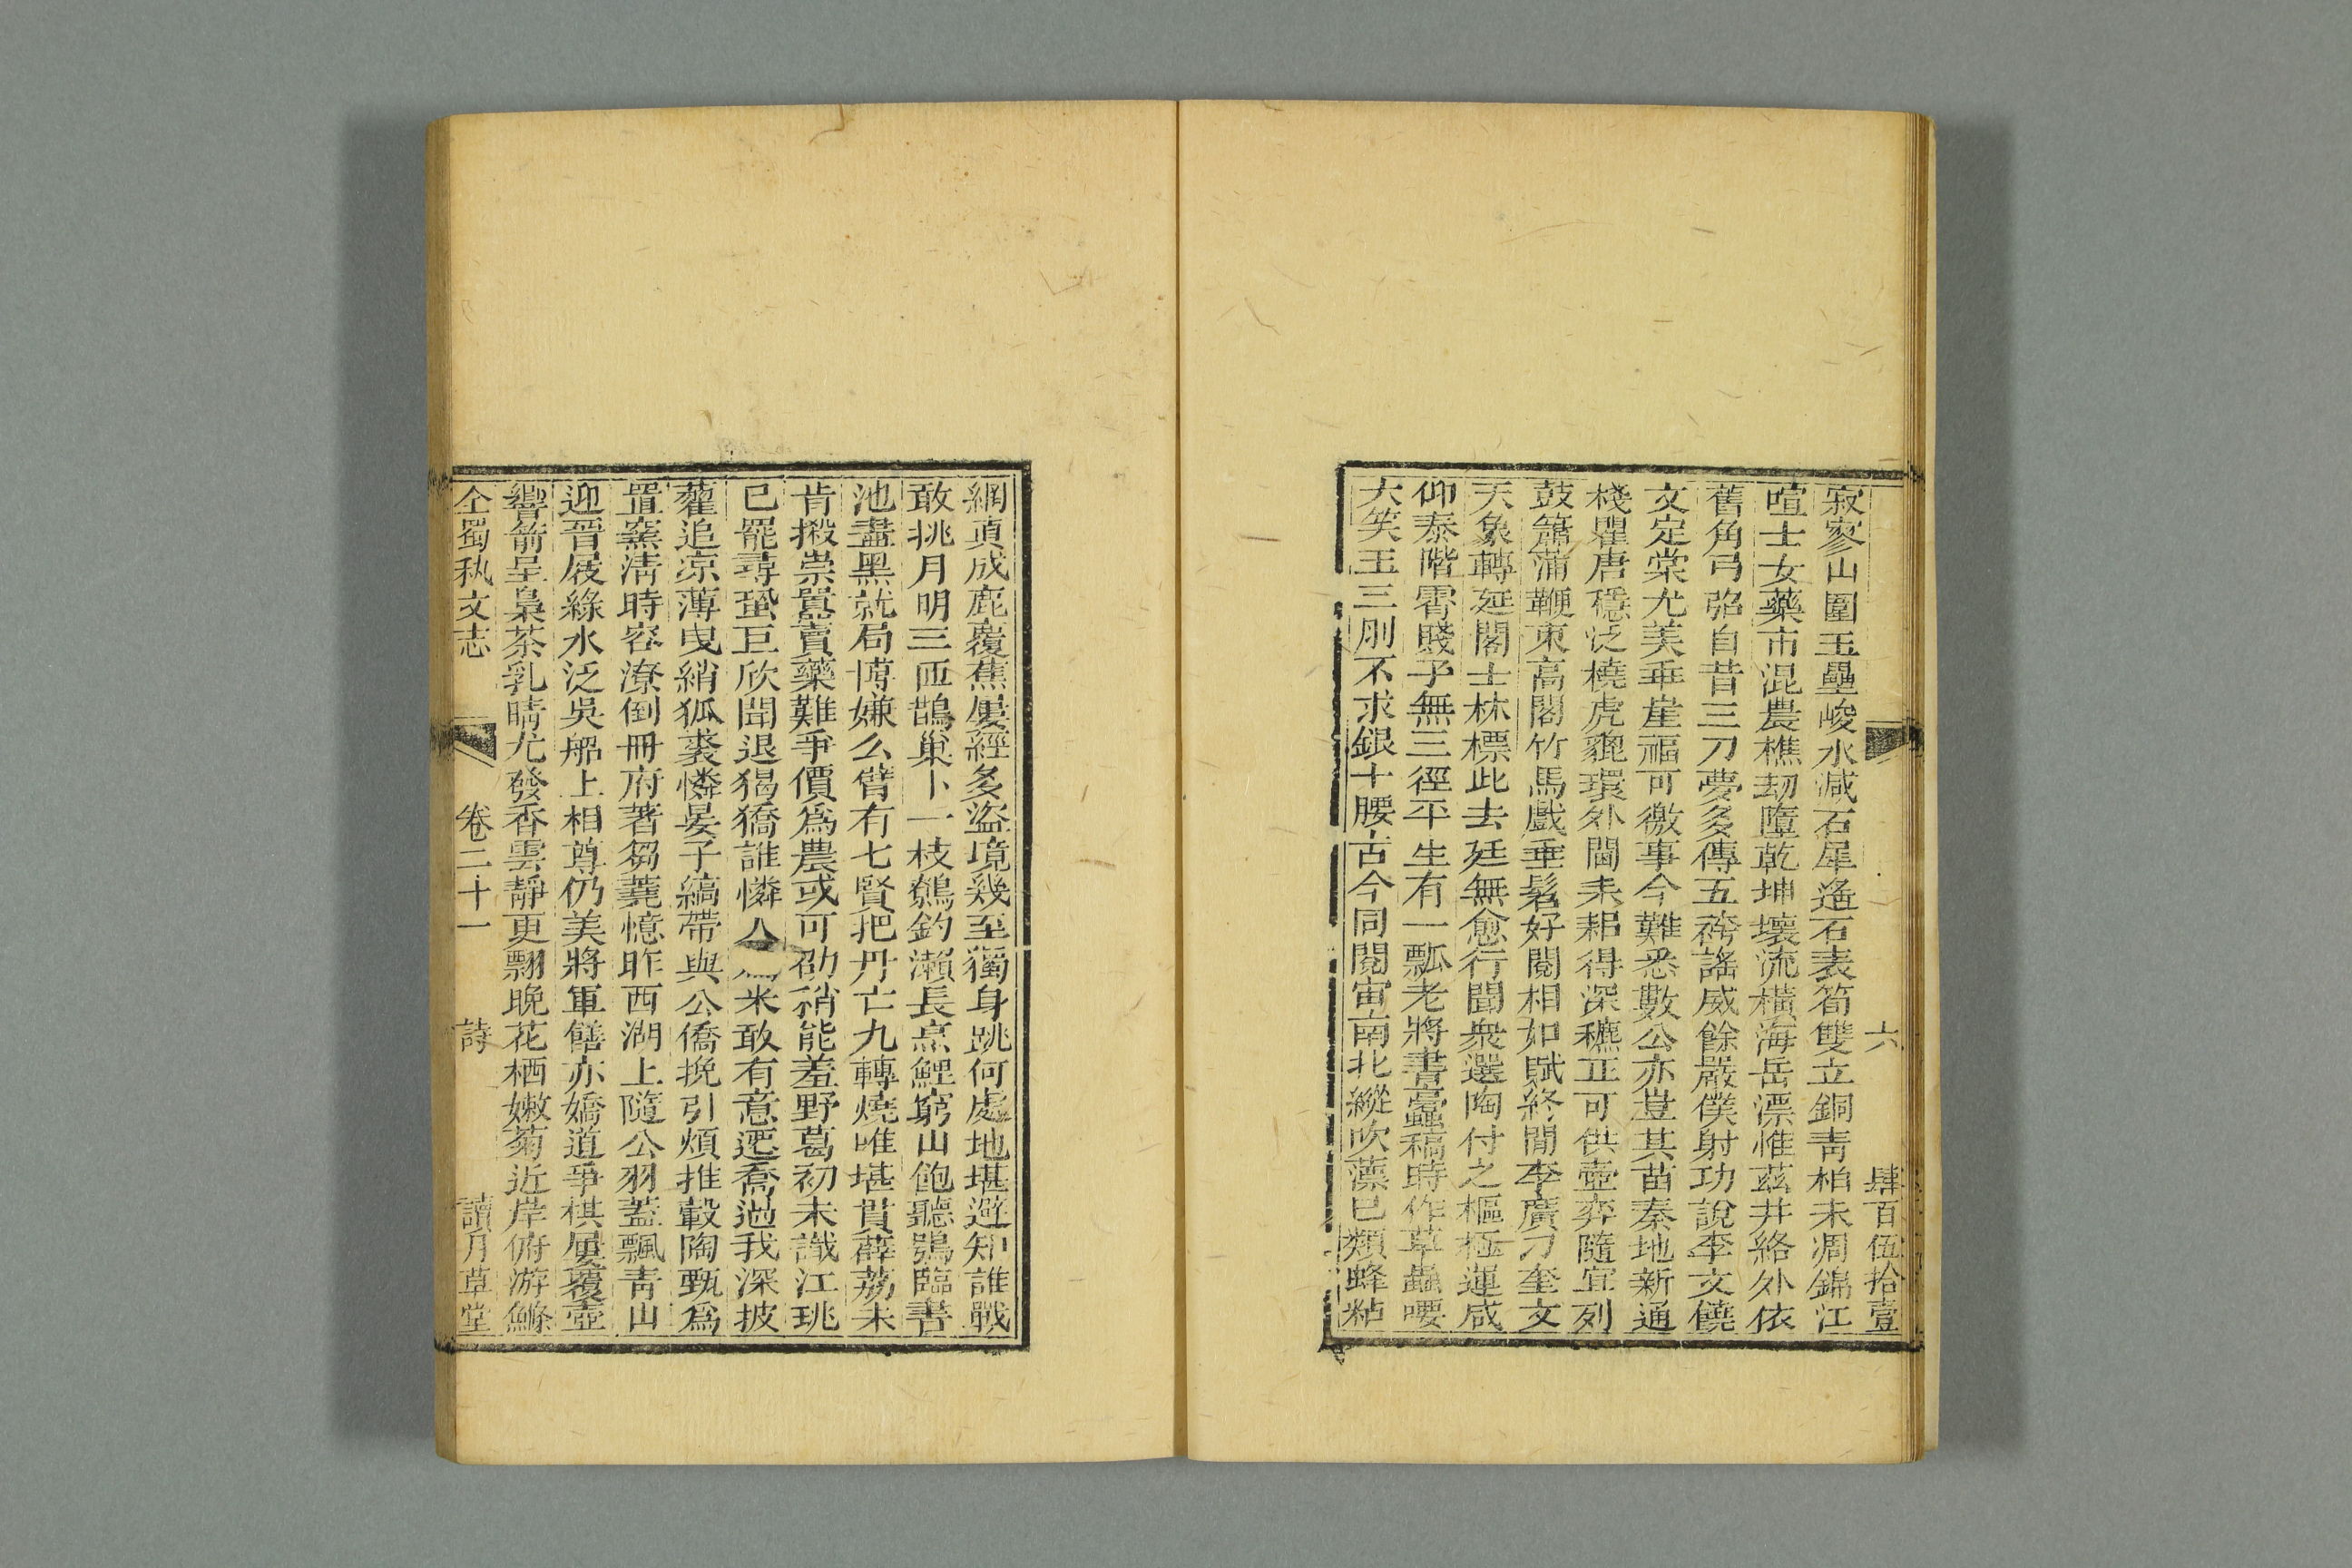 六 肆百伍拾壹
寂寥山圍玉壘峻水減石犀遙石表筍雙立銅青柏未凋錦江
喧士女藥市混農樵劫墮乾坤壞流橫海岳漂惟茲井絡外依
舊角弓弨自昔三刀夢多傳五袴謠威餘嚴僕射功說李文饒
文定棠尤美垂崖福可徼事今難悉數公亦豈其苗秦地新通
棧瞿唐穩泛橈虎貔環外閫耒耜得深穮正可供壺弈隨宜列
鼓簫蒲鞭束高閣竹馬戲垂髫好閱相如賦終閒李廣刀奎文
天象轉延閣士林標此去廷無愈行聞衆選陶付之樞極運咸
仰泰階霄賤子無三徑平生有一瓢老將書蠹稿時作草蟲喓
大笑玉三刖不求銀十腰古今同閱宙南北縱吹薸已類蜂粘
網真成鹿覆蕉屢經多盜境幾至獨身跳何處地堪避知誰戰
敢挑月明三匝鵲巢卜一枝鷦釣瀨長烹鯉窮山飽聽鴞臨書
池盡黑就局博嫌么臂有七賢把丹亡九轉燒唯堪貫薜荔未
肯掇崇囂賣藥難爭價爲農或可劭稍能羞野葛初未識江珧
已罷尋蛩巨欣聞退猲獢誰憐人米敢有意遌喬過我深披
藿追涼薄曳綃狐裘憐晏子縞帶與公僑挽引煩推轂陶甄爲
置窯淸時容潦倒冊府著芻蕘憶昨西湖上隨公羽蓋飄青山
迎晉屐綠水泛吳船上相尊仍美將軍饍亦嬌道爭棋屢覆壺
響箭呈梟茶乳晴尤發香雲靜更飄晚花栖嫩菊近岸俯游鰷
全蜀秇文志 卷二十一 詩 讀月草堂